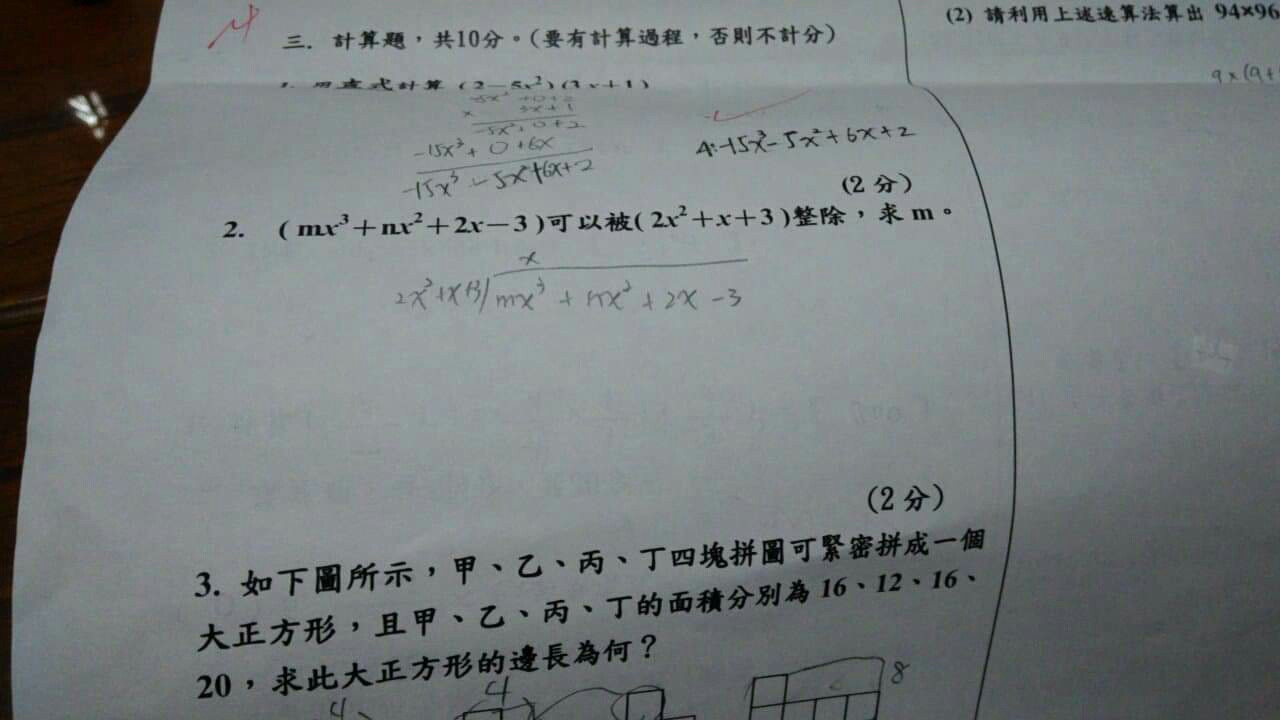 三. 計算題，共10分。(要有計算過程，否則不計分)
(2) 請利用上述速算法算出 94×96
1. 用直式計算 (2-5x²)(3x+1)
-5x²+0+2
× 3x+1
-5x²+0+2
-15x³+0+6x
-15x³-5x²+6x+2
A:-15x³-5x²+6x+2
(2 分)
2. (mx³+nx²+2x-3)可以被(2x²+x+3)整除，求 m。
x
2x²+x+3)mx³+nx²+2x-3
(2 分)
3. 如下圖所示，甲、乙、丙、丁四塊拼圖可緊密拼成一個
大正方形，且甲、乙、丙、丁的面積分別為 16、12、16、
20，求此大正方形的邊長為何？
4
4
8